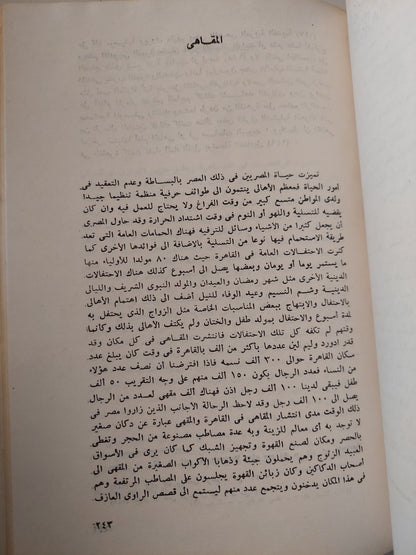 المقاهى
تميزت حياة المصريين فى ذلك العصر بالبساطة وعدم التعقيد فى
أمور الحياة فمعظم الأهالى ينتمون الى طوائف حرفية منظمة تنظيما جيدا
ولدى المواطن متسع كبير من وقت الفراغ ولا يحتاج للعمل فيه وان كان
يقضيه للتسلية واللهو أو النوم فى وقت اشتداد الحرارة وقد حاول المصرى
أن يجعل كثيرا من الأشياء وسائل للترفيه فهناك الحمامات العامة التى تعد
طريقة الاستحمام فيها نوعا من التسلية بالاضافة الى فوائدها الأخرى كما
كثرت الاحتفالات العامة فى القاهرة حيث هناك ٨٠ مولدا للأولياء منها
ما يستمر يوما أو يومان وبعضها يصل الى أسبوع كذلك هناك الاحتفالات
الدينية الأخرى مثل شهر رمضان والعيدان والمولد النبوى الشريف والليالى
الدينية وشم النسيم وعيد الوفاء للنيل أضف الى ذلك اهتمام الأهالى
بالاحتفال والابتهاج ببعض المناسبات الخاصة مثل الزواج الذى يحتفل به
لمدة أسبوع والاحتفال بمولد طفل والختان ولم يكتف الأهالى بذلك وكأنما
وقتهم لم تكفه كل تلك الاحتفالات فانتشرت المقاهى فى كل مكان وقد
قدر ادورد وليم لين عددها بأكثر من ألف بالقاهرة فى وقت كان يبلغ عدد
سكان القاهرة حوالى ٣٠٠ ألف نسمه فاذا افترضنا أن نصف عدد هؤلاء
من النساء فعدد الرجال يكون ١٥٠ ألف منهم على وجه التقريب ٥٠ ألف
طفل فيبقى لدينا ١٠٠ ألف رجل اذن فهناك ألف مقهى لعدد من الرجال
يصل الى ١٠٠ ألف رجل وقد لاحظ الرحالة الأجانب الذين زاروا مصر فى
ذلك الوقت مدى انتشار المقاهى فى القاهرة والمقهى عبارة عن دكان صغير
لا توجد به أى معالم للزينة وبه عدة مصاطب مصنوعة من الحجر وتغطى
بالحصر ومكان لصنع القهوة وتجهيز الشبك كما كان يرى فى الأسواق
العبيد الزنوج وهم يحملون جيئة وذهابا الأكواب الصغيرة من المقهى الى
أصحاب الدكاكين وكان زبائن القهوة يجلسون على المصاطب المرتفعة وهم
فى هذا المكان يدخنون ويتجمع عدد منهم ليستمع الى قصص الراوى العازف
٢٤٣